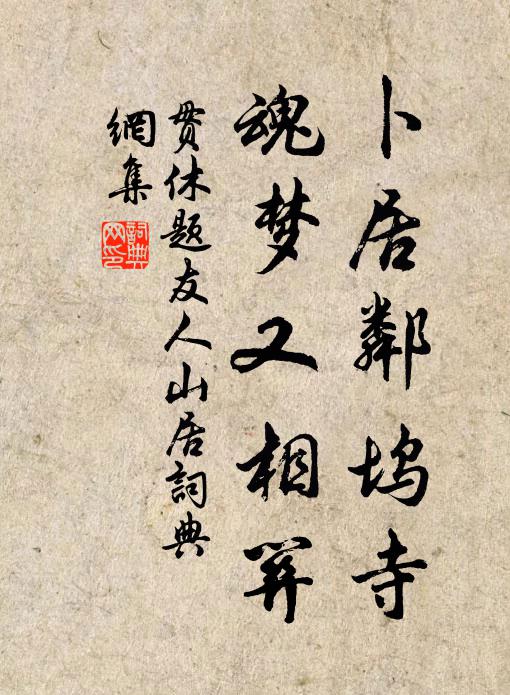 卜居鄰塢寺
魂梦又相關
贯休题友人山居詞典
網集
詞典
网印